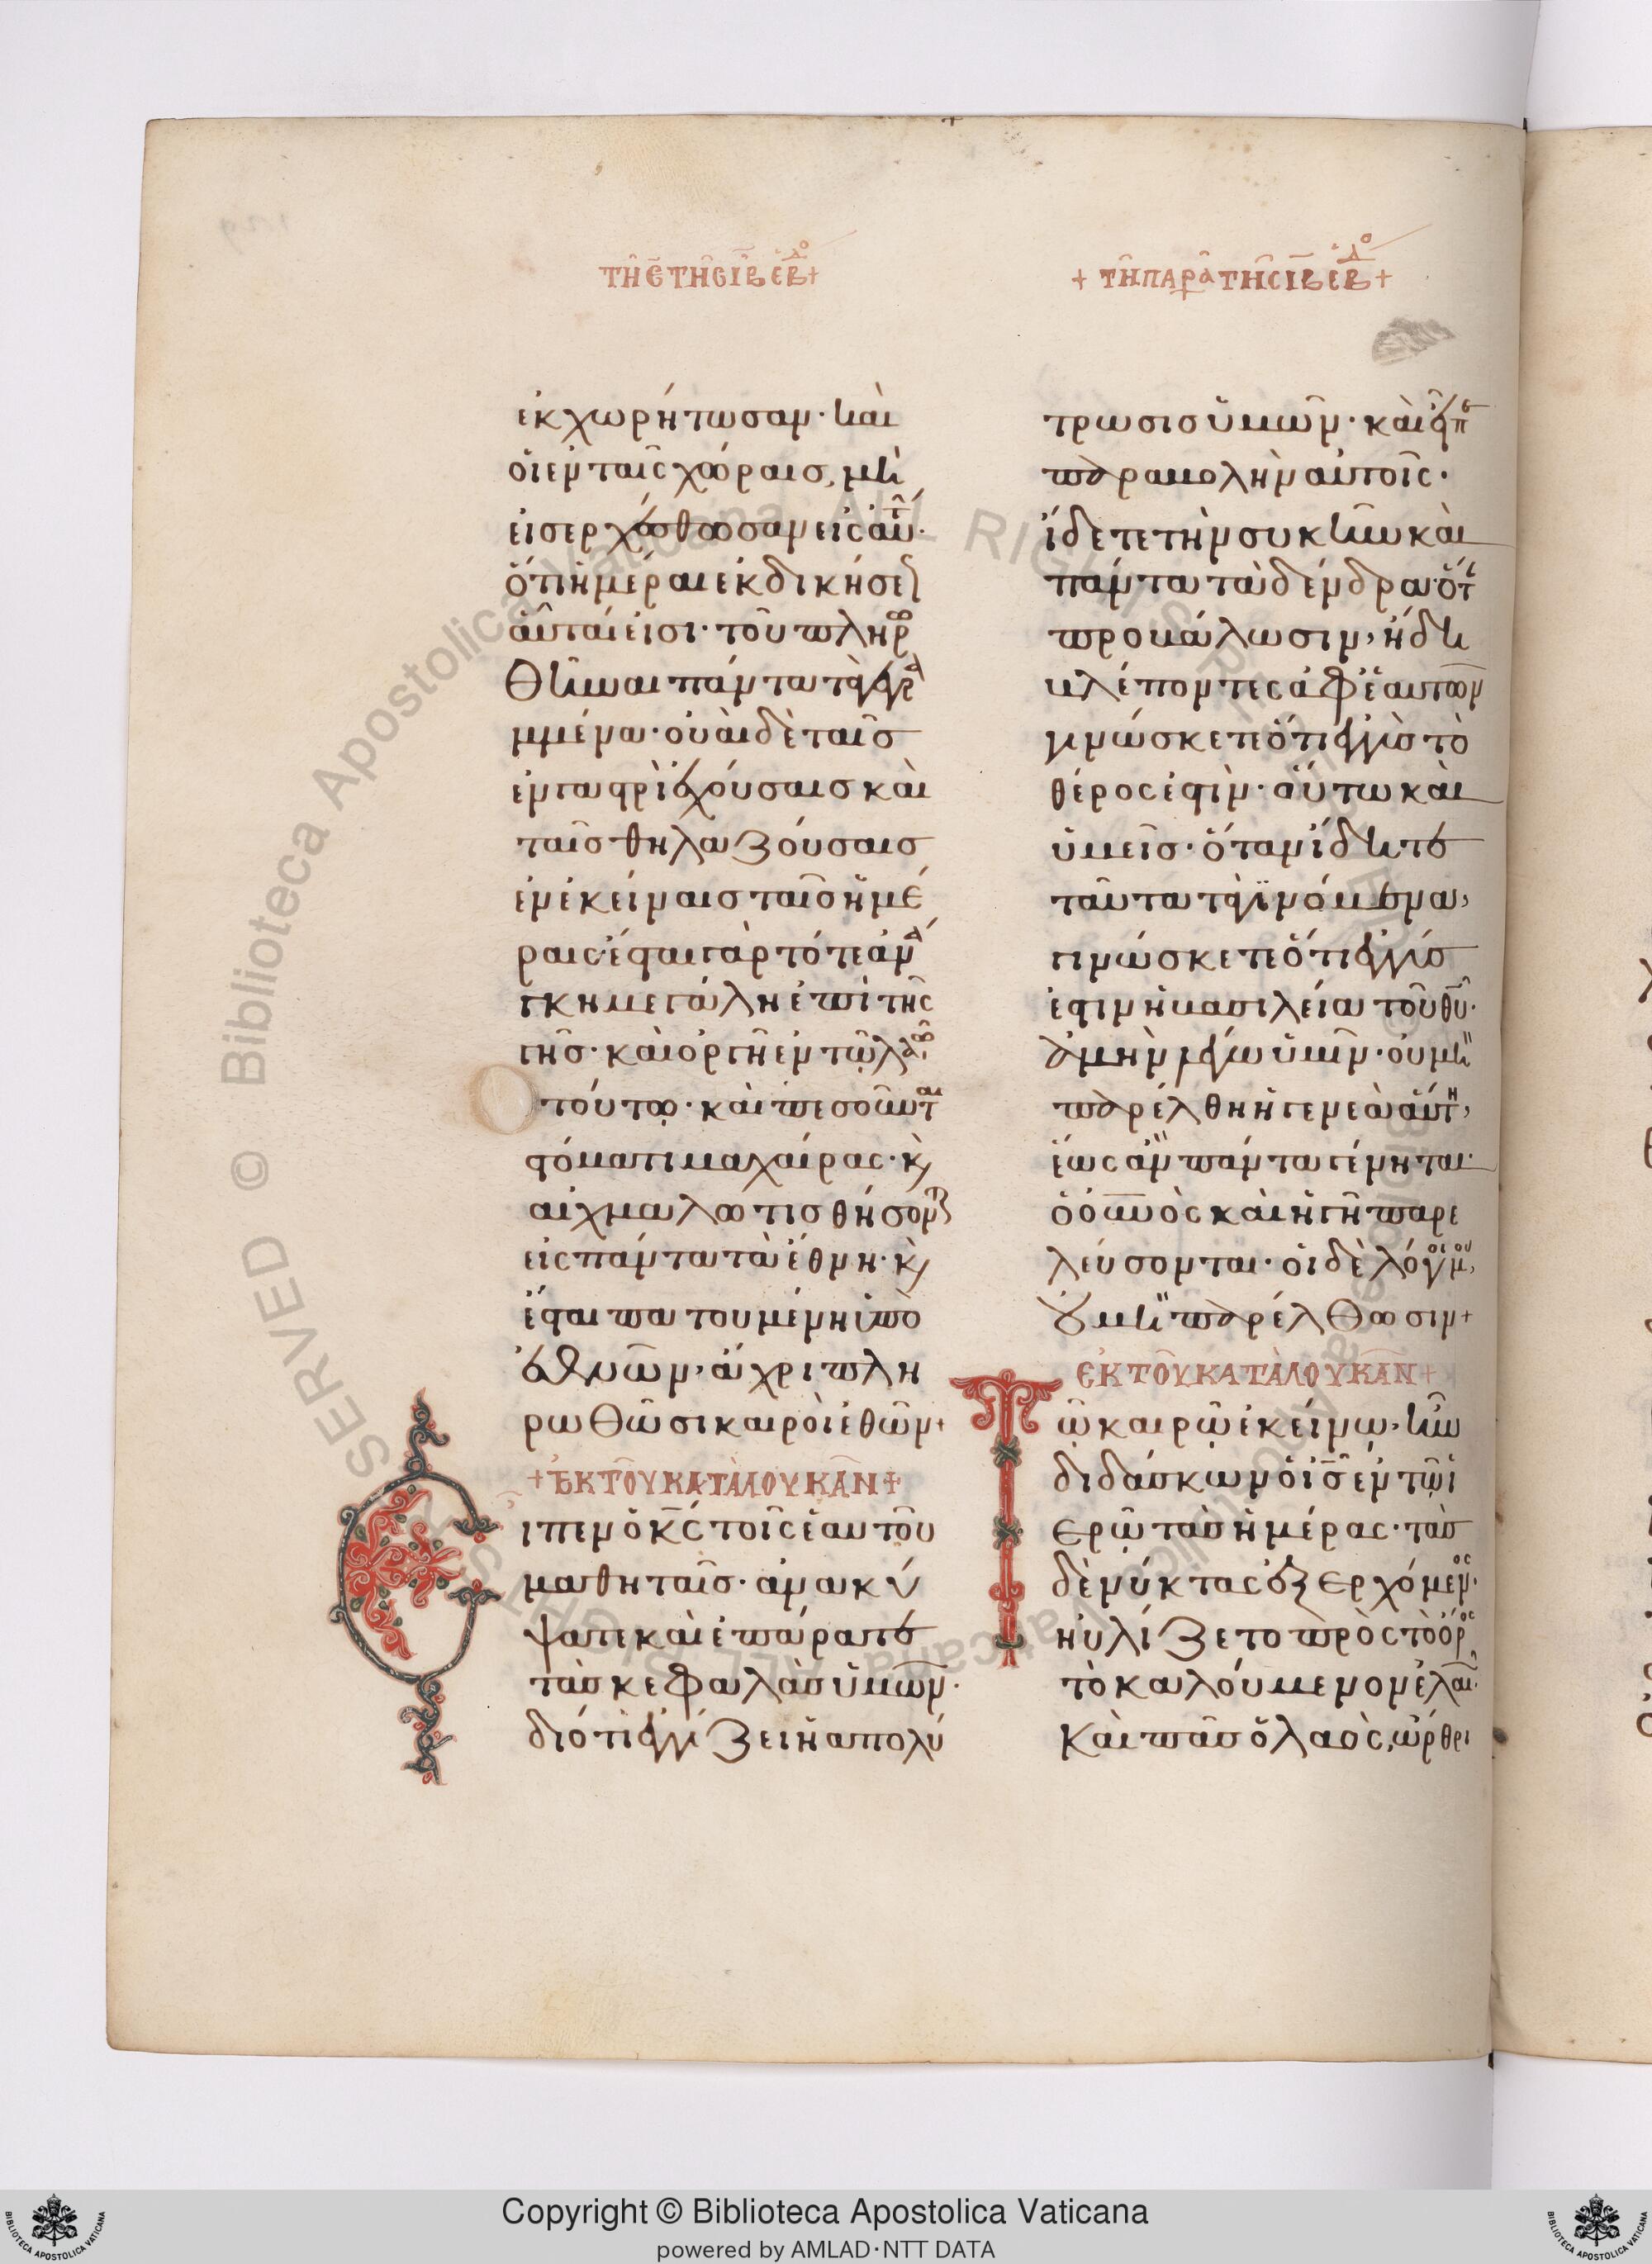 τῆ ε̄ τῆς ιβ ἑβδο +
ἐκχωρήτωσαν· καὶ
οἱ ἐν ταῖς χώραις, μὴ
εἰσερχέσθωσαν εἰς αὐτ·
ὅτι ἡμέραι ἐκδικήσε
αὗται εἰσι· τοῦ πληρω
θῆναι πάντα τὰ γεγρα
μμένα· οὐαὶ δὲ ταῖς
ἐν γαστρὶ ἐχούσαις καὶ
ταῖς θηλαζούσαις
ἐν ἐκείναις ταῖς ἡμέ
ραις· ἔσται γὰρ τότε ἀνά
γκη μεγάλη ἐπὶ τῆς
γῆς· καὶ ὀργὴ ἐν τῷ λαῷ
τούτω· καὶ πεσοῦνται
στόματι μαχαίρας· κ
αἰχμαλωτισθήσον
εἰς πάντα τὰ ἔθνη· κ
ἔσται πατουμένη ὑπὸ
ἐθνῶν, ἄχρι πλη
ρωθῶσι καιροὶ ἐθῶν +
+ ἘΚ ΤΟῦ ΚΑΤᾺ ΛΟΥΚᾶΝ +
Εἶπεν ὁ κ̅ς̅ τοῖς ἑαυτοῦ
μαθηταῖς· ἀνακύ
ψατε καὶ ἐπάρατε
τὰς κεφαλὰς ὑμῶν·
διότι ἐγγίζει ἡ απολύ
+ τῆ παρα τῆς ιβ ἑβδο +
τρωσις ὑμῶν· καὶ εἶπε
παραβολὴν αὐτοῖς·
ἴδετε τὴν συκῆν καὶ
πάντα τὰ δένδρα· ὅτ
προβάλωσιν, ἤδη
βλέποντες ἀφ ἑαυτῶν
γινώσκετε ὅτι ἐγγὺς τὸ
θέρος ἐστὶν· οὕτω καὶ
ὑμεῖς· ὅταν ἴδητε
ταῦτα γινόμενα,
γινώσκετε ὅτι ἐγγύς
ἐστιν ἡ βασιλεία τοῦ θ̅υ̅·
ἀμὴν λέγω ὑμῖν· οὐ μὴ
παρέλθη ἡ γενεὰ αὕτη,
ἕως ἂν πάντα γένηται·
ὁ οὐ̅νος καὶ ἡ γῆ παρε
λεύσονται· οἱ δὲ λόγοι μου,
οὐ μὴ παρέλθωσιν +
ἘΚ ΤΟῦ ΚΑΤᾺ ΛΟΥΚᾶΝ +
Τῶ καιρῶ ἐκείνω, ἦν
διδάσκων ὁ ι̅ς̅ ἐν τῷ ἱ
ερῷ τὰς ἡμέρας· τὰς
δὲ νύκτας ἐξερχόμενος·
ηὐλίζετο πρὸς τὸ ὄρος
τὸ καλούμενον ἐλαι·
Καὶ πᾶς ὁ λαὸς, ὤρθρι
Copyright © Biblioteca Apostolica Vaticana
powered by AMLAD·NTT DATA